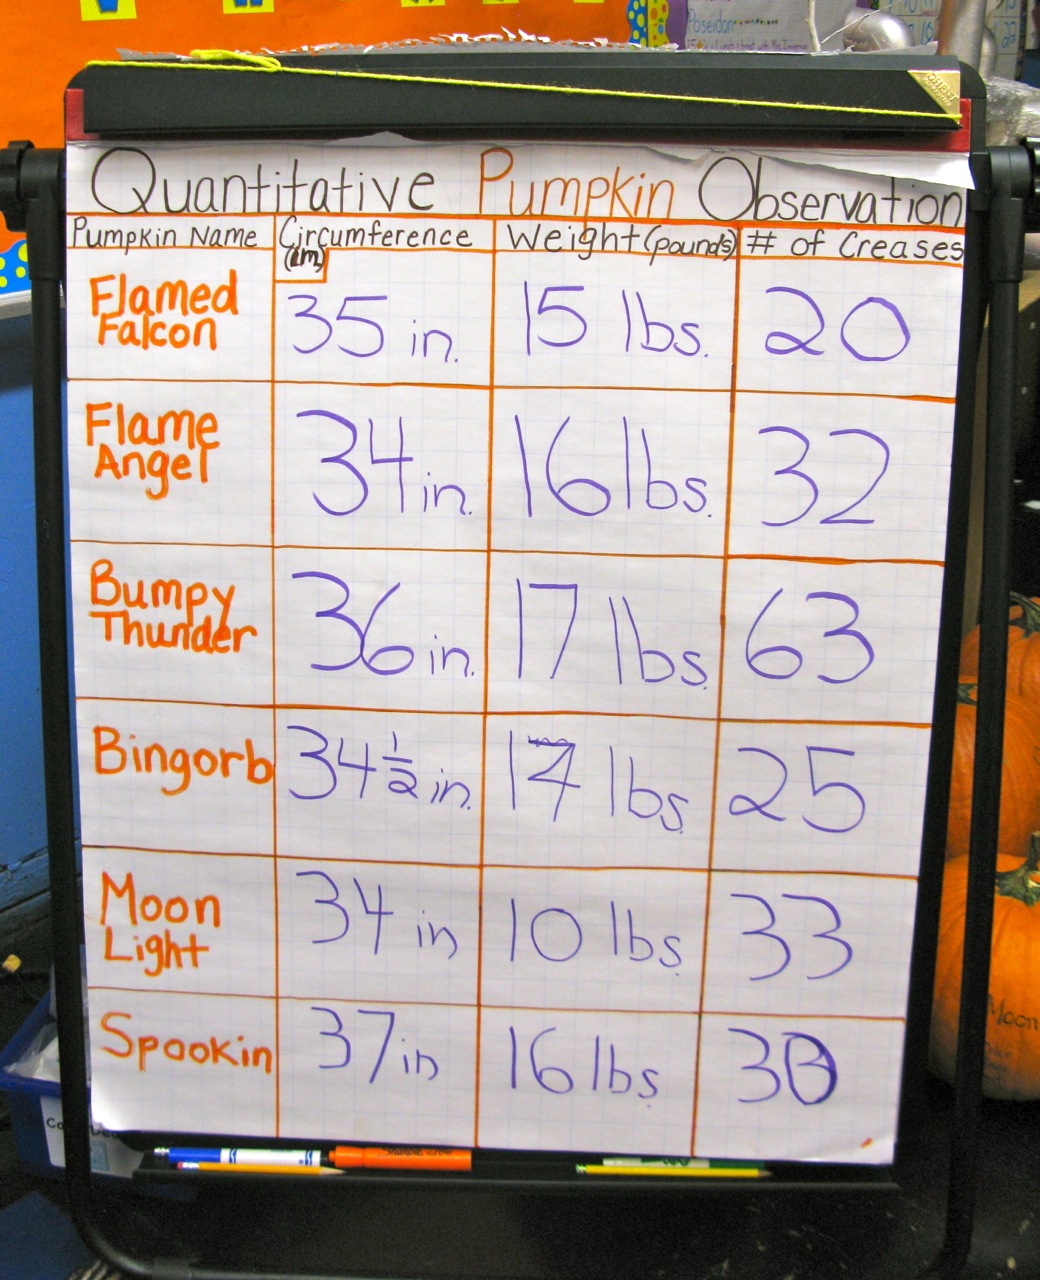 Poseidon
Quantitative Pumpkin Observation
Pumpkin Name Circumference Weight (pounds) # of Creases
Flamed
Falcon 35 in. 15 lbs. 20
Flame
Angel 34 in. 16 lbs. 32
Bumpy
Thunder 36 in. 17 lbs. 63
Bingorb 34 1/2 in. 17 lbs. 25
Moon
Light 34 in 10 lbs. 33
Spookin 37 in 16 lbs. 30
Moon